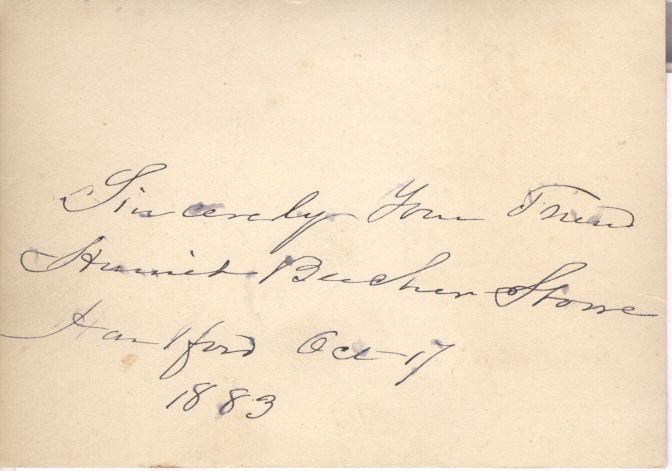 Sincerely Your Friend
Harriet Beecher Stowe
Hartford Oct 17
1883